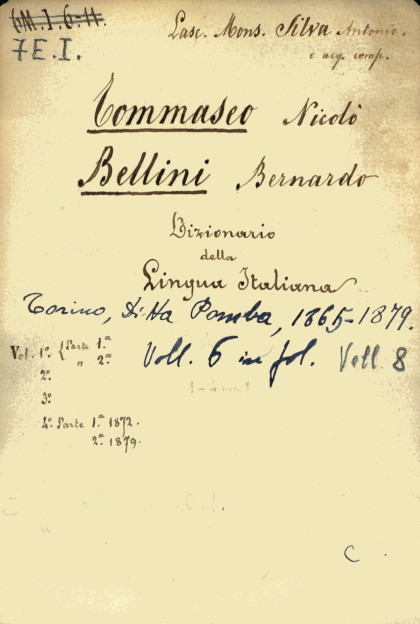 6M.I.6-11.
Lasc. Mons. Silva Antonio.
7E.I.
e acq. comp.
Tommaseo Nicolò
Bellini Bernardo
Dizionario
della
Lingua Italiana
Torino, Ditta Pomba, 1865-1879.
Vol. 1º. { Parte 1.ª
" 2.ª
Voll. 6 in fol. Voll 8
2º.
3º.
4º. Parte 1.ª 1872.
2.ª 1879.
C